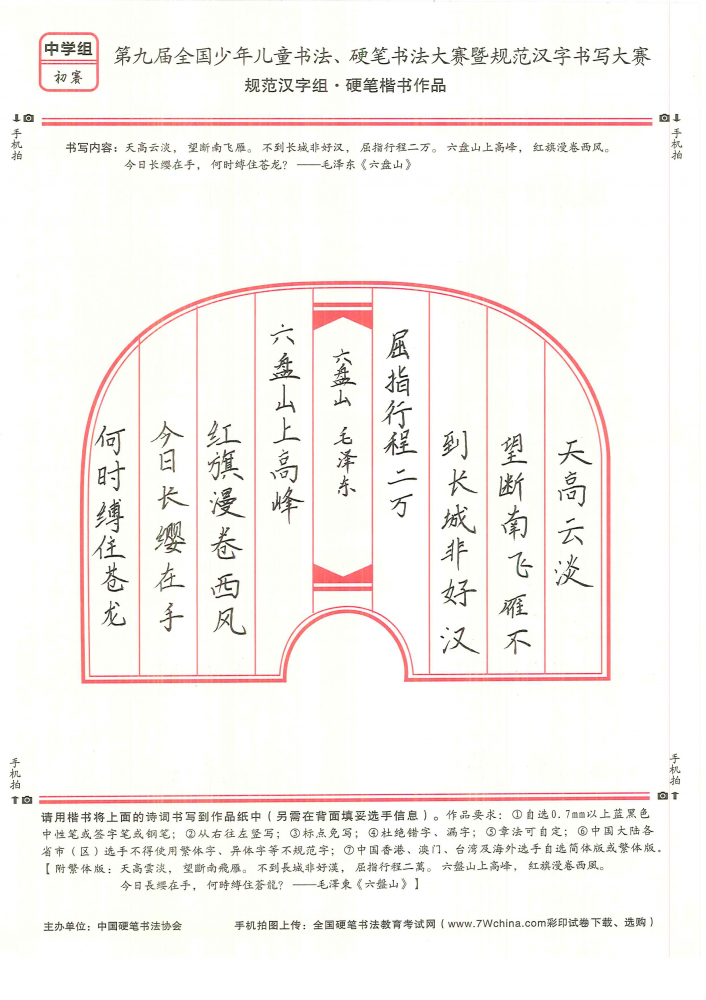 中学组
初赛
第九届全国少年儿童书法、硬笔书法大赛暨规范汉字书写大赛
规范汉字组·硬笔楷书作品
手机拍
手机拍
书写内容：天高云淡，望断南飞雁。不到长城非好汉，屈指行程二万。六盘山上高峰，红旗漫卷西风。
今日长缨在手，何时缚住苍龙？——毛泽东《六盘山》
天高云淡
望断南飞雁不
到长城非好汉
屈指行程二万
六盘山 毛泽东
六盘山上高峰
红旗漫卷西风
今日长缨在手
何时缚住苍龙
手机拍
手机拍
请用楷书将上面的诗词书写到作品纸中（另需在背面填妥选手信息）。作品要求：①自选0.7mm以上蓝黑色
中性笔或签字笔或钢笔；②从右往左竖写；③标点免写；④杜绝错字、漏字；⑤章法可自定；⑥中国大陆各
省市（区）选手不得使用繁体字、异体字等不规范字；⑦中国香港、澳门、台湾及海外选手自选简体版或繁体版。
【附繁体版：天高雲淡，望斷南飛雁。不到長城非好漢，屈指行程二萬。六盤山上高峰，紅旗漫卷西風。
今日長纓在手，何時縛住蒼龍？——毛澤東《六盤山》】
主办单位：中国硬笔书法协会
手机拍图上传：全国硬笔书法教育考试网（www.7Wchina.com彩印试卷下载、选购）